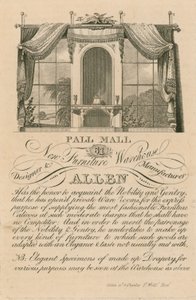 PALL MALL
61
New Furniture Warehouse
Designer & Manufacturer
ALLEN
Has the honor to acquaint the Nobility and Gentry,
that he has opened private Ware Rooms for the express
purpose of supplying the most fashionable Furniture
at such moderate charges that he shall have
no Competitor. And in order to merit the patronage
of the Nobility & Gentry, he undertakes to make up
every kind of furniture to which such goods are
adapted with an Elegance & taste not usually met with.
NB. Elegant specimens of made up Drapery for
various purposes may be seen at the Warehouse as above